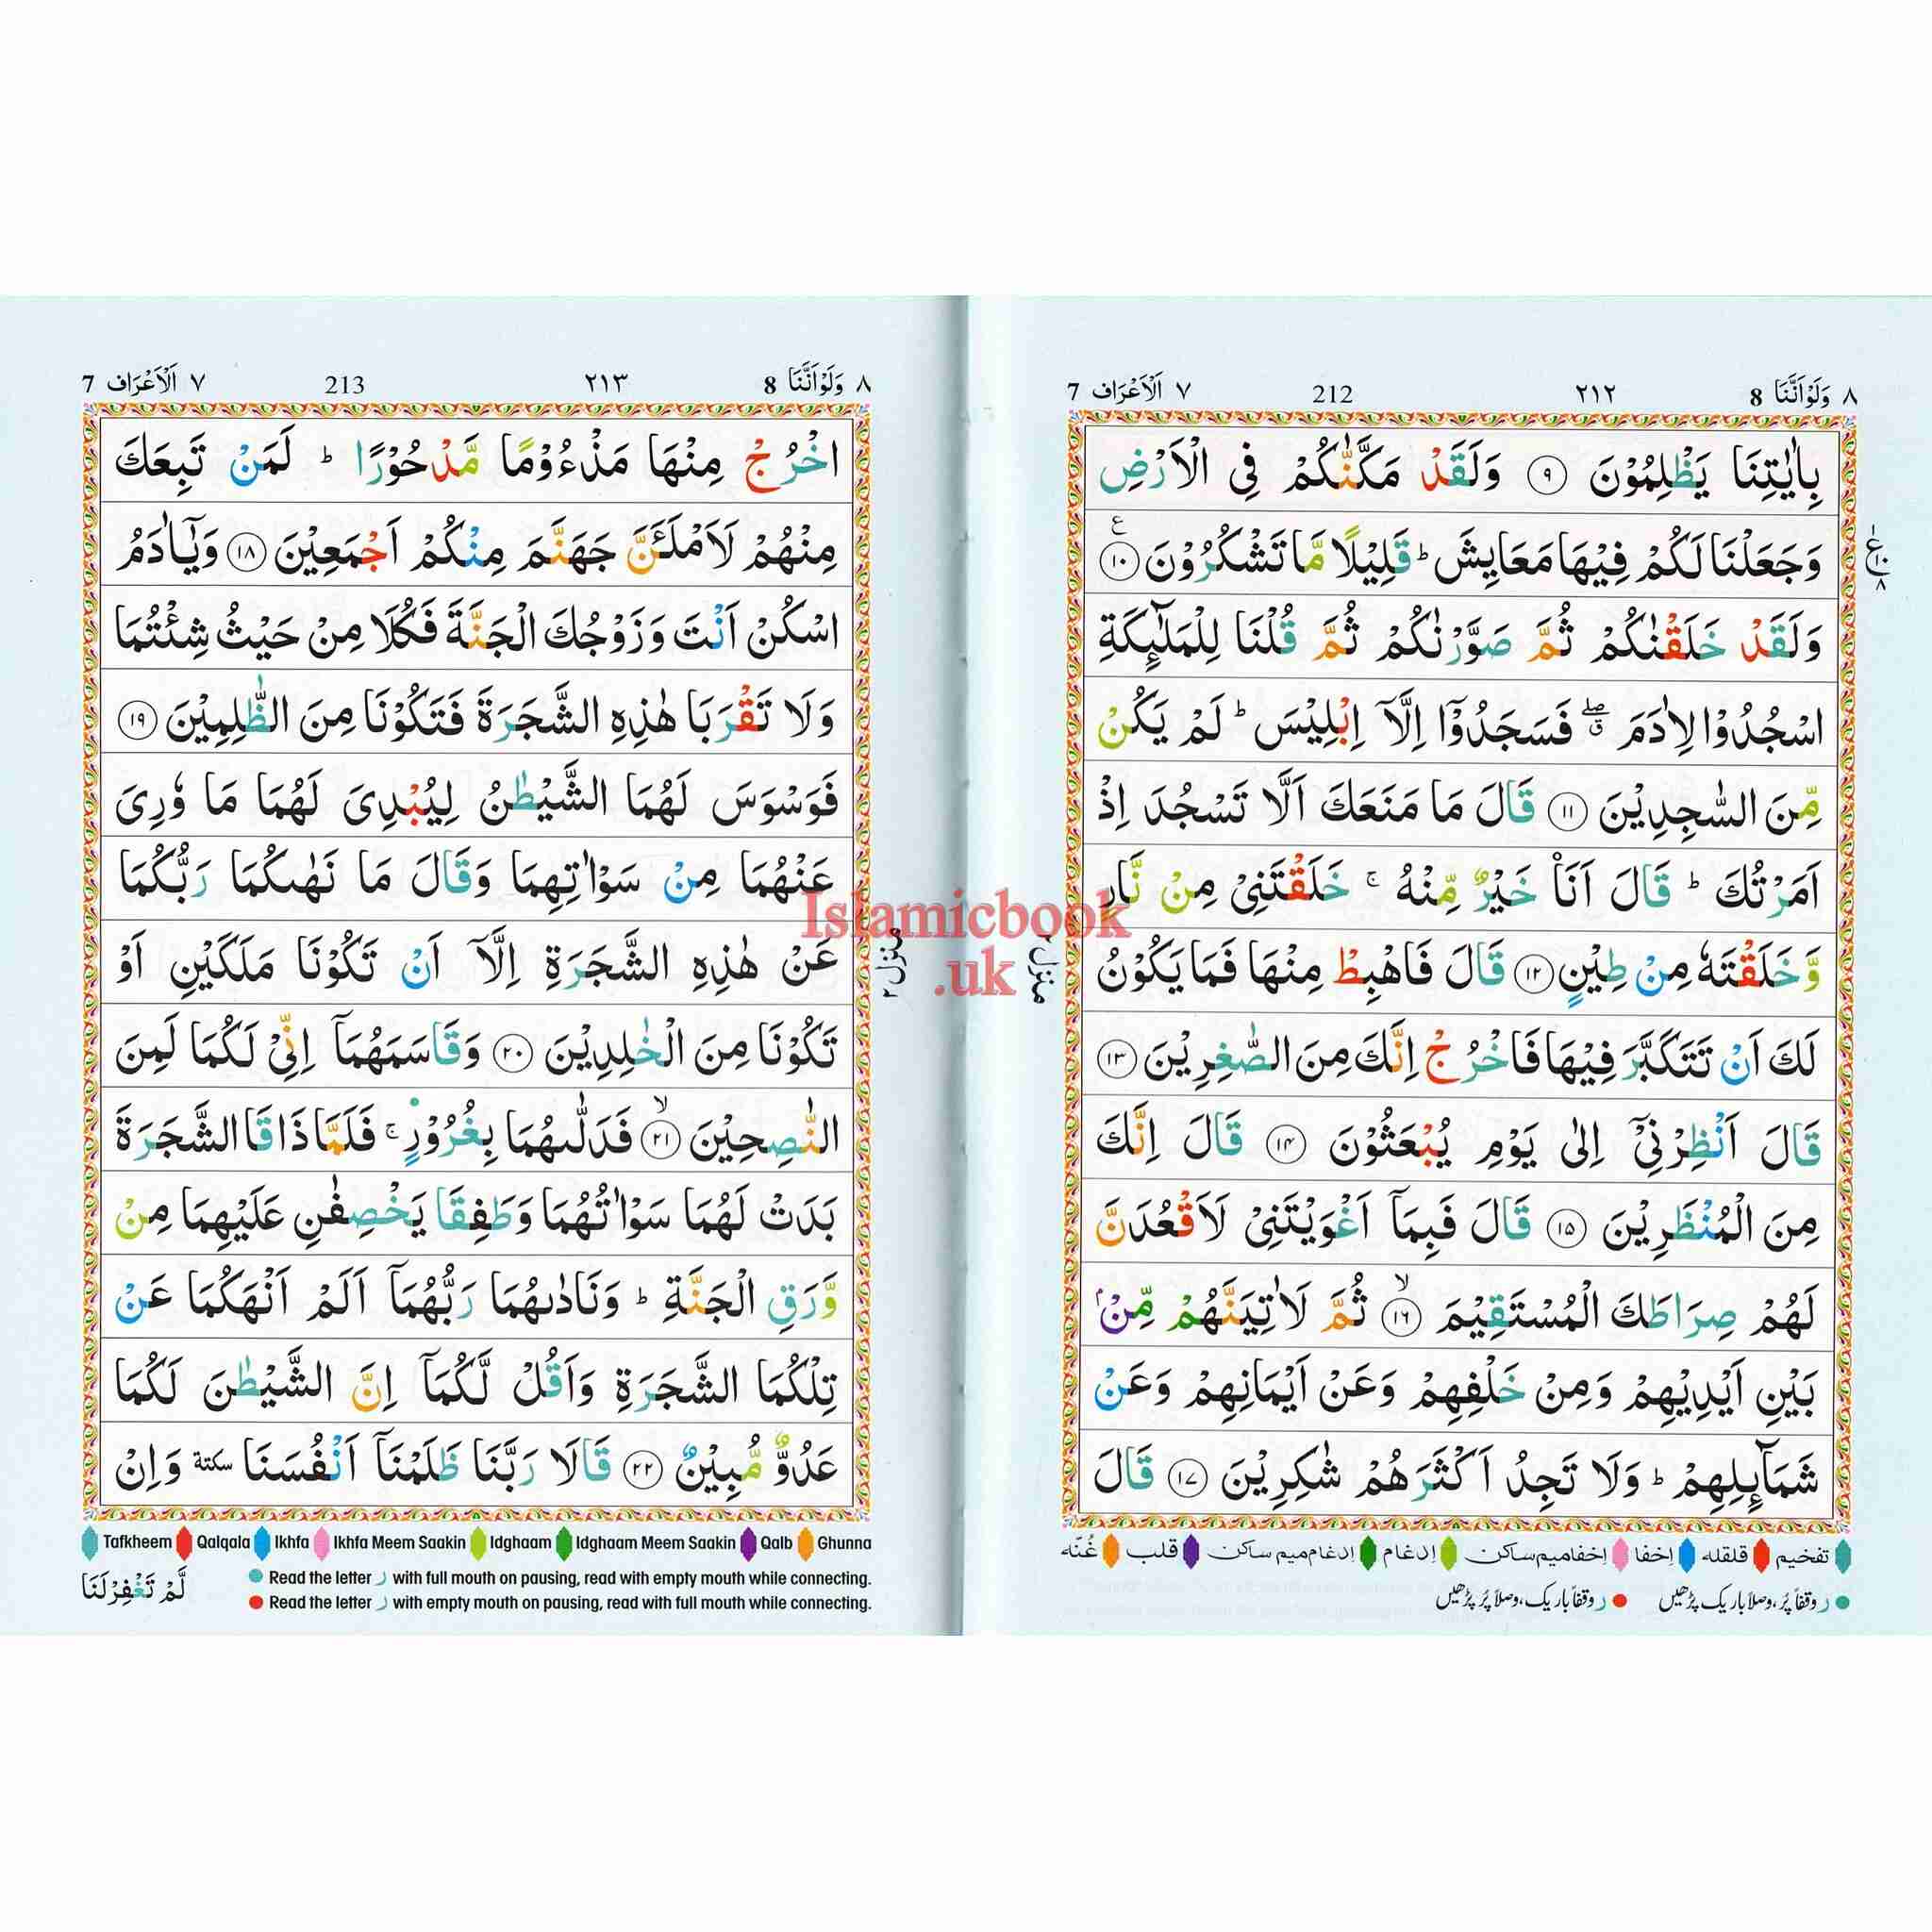 ٨ وَلَوْاَنَّنَا 8 ٢١٢ 212 ٧ اَلْاَعْرَاف 7
بِاٰيٰتِنَا يَظْلِمُوْنَ ﴿٩﴾ وَلَقَدْ مَكَّنّٰكُمْ فِى الْاَرْضِ
وَجَعَلْنَا لَكُمْ فِيْهَا مَعَايِشَ ؕ قَلِيْلًا مَّا تَشْكُرُوْنَ ﴿١٠﴾ ع
وَلَقَدْ خَلَقْنٰكُمْ ثُمَّ صَوَّرْنٰكُمْ ثُمَّ قُلْنَا لِلْمَلٰٓئِكَةِ
اسْجُدُوْا لِاٰدَمَ ۖ فَسَجَدُوْٓا اِلَّآ اِبْلِيْسَ ؕ لَمْ يَكُنْ
مِّنَ السّٰجِدِيْنَ ﴿١١﴾ قَالَ مَا مَنَعَكَ اَلَّا تَسْجُدَ اِذْ
اَمَرْتُكَ ؕ قَالَ اَنَا۠ خَيْرٌ مِّنْهُ ۚ خَلَقْتَنِىْ مِنْ نَّارٍ
وَّخَلَقْتَهٗ مِنْ طِيْنٍ ﴿١٢﴾ قَالَ فَاهْبِطْ مِنْهَا فَمَا يَكُوْنُ
لَكَ اَنْ تَتَكَبَّرَ فِيْهَا فَاخْرُجْ اِنَّكَ مِنَ الصّٰغِرِيْنَ ﴿١٣﴾
قَالَ اَنْظِرْنِىْٓ اِلٰى يَوْمِ يُبْعَثُوْنَ ﴿١٤﴾ قَالَ اِنَّكَ
مِنَ الْمُنْظَرِيْنَ ﴿١٥﴾ قَالَ فَبِمَآ اَغْوَيْتَنِىْ لَاَقْعُدَنَّ
لَهُمْ صِرَاطَكَ الْمُسْتَقِيْمَ ﴿١٦﴾ۙ ثُمَّ لَاٰتِيَنَّهُمْ مِّنْۢ
بَيْنِ اَيْدِيْهِمْ وَمِنْ خَلْفِهِمْ وَعَنْ اَيْمَانِهِمْ وَعَنْ
شَمَآئِلِهِمْ ؕ وَلَا تَجِدُ اَكْثَرَهُمْ شٰكِرِيْنَ ﴿١٧﴾ قَالَ
تفخیم قلقلہ اِخفا اِخفا میم ساکن اِدغام اِدغام میم ساکن قلب غُنّه
ر وقفاً پُر، وصلاً باریک پڑھیں ر وقفاً باریک، وصلاً پُر پڑھیں
١ ع ١٠ ٨
منزل ٢
٨ وَلَوْاَنَّنَا 8 ٢١٣ 213 ٧ اَلْاَعْرَاف 7
اخْرُجْ مِنْهَا مَذْءُوْمًا مَّدْحُوْرًا ؕ لَمَنْ تَبِعَكَ
مِنْهُمْ لَاَمْلَـَٔنَّ جَهَنَّمَ مِنْكُمْ اَجْمَعِيْنَ ﴿١٨﴾ وَيٰٓاٰدَمُ
اسْكُنْ اَنْتَ وَزَوْجُكَ الْجَنَّةَ فَكُلَا مِنْ حَيْثُ شِئْتُمَا
وَلَا تَقْرَبَا هٰذِهِ الشَّجَرَةَ فَتَكُوْنَا مِنَ الظّٰلِمِيْنَ ﴿١٩﴾
فَوَسْوَسَ لَهُمَا الشَّيْطٰنُ لِيُبْدِىَ لَهُمَا مَا وٗرِىَ
عَنْهُمَا مِنْ سَوْاٰتِهِمَا وَقَالَ مَا نَهٰىكُمَا رَبُّكُمَا
عَنْ هٰذِهِ الشَّجَرَةِ اِلَّآ اَنْ تَكُوْنَا مَلَكَيْنِ اَوْ
تَكُوْنَا مِنَ الْخٰلِدِيْنَ ﴿٢٠﴾ وَقَاسَمَهُمَآ اِنِّىْ لَكُمَا لَمِنَ
النّٰصِحِيْنَ ﴿٢١﴾ۙ فَدَلّٰىهُمَا بِغُرُوْرٍ ۚ فَلَمَّا ذَاقَا الشَّجَرَةَ
بَدَتْ لَهُمَا سَوْاٰتُهُمَا وَطَفِقَا يَخْصِفٰنِ عَلَيْهِمَا مِنْ
وَّرَقِ الْجَنَّةِ ؕ وَنَادٰىهُمَا رَبُّهُمَآ اَلَمْ اَنْهَكُمَا عَنْ
تِلْكُمَا الشَّجَرَةِ وَاَقُلْ لَّكُمَآ اِنَّ الشَّيْطٰنَ لَكُمَا
عَدُوٌّ مُّبِيْنٌ ﴿٢٢﴾ قَالَا رَبَّنَا ظَلَمْنَآ اَنْفُسَنَا سكتة وَاِنْ
Tafkheem Qalqala Ikhfa Ikhfa Meem Saakin Idghaam Idghaam Meem Saakin Qalb Ghunna
Read the letter ر with full mouth on pausing, read with empty mouth while connecting.
Read the letter ر with empty mouth on pausing, read with full mouth while connecting.
لَّمْ تَغْفِرْلَنَا
منزل ٢
Islamicbook
.uk